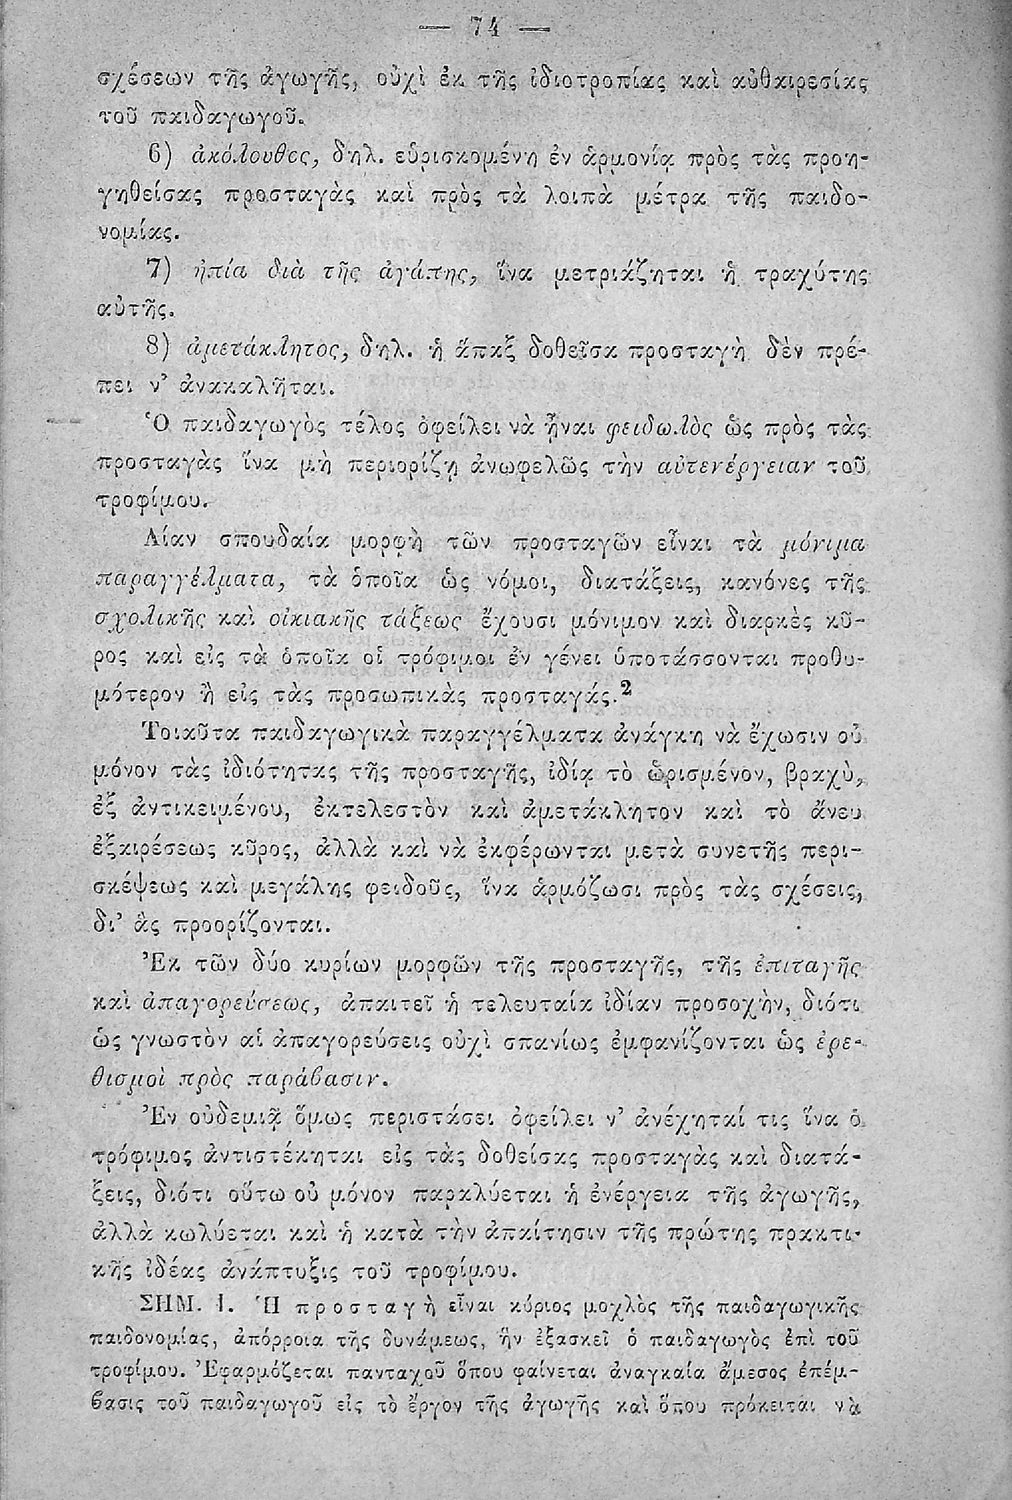 — 74 —
σχέσεων τῆς ἀγωγῆς, οὐχὶ ἐκ τῆς ἰδιοτροπίας καὶ αὐθαιρεσίας
τοῦ παιδαγωγοῦ.
6) ἀκόλουθος, δηλ. εὑρισκομένη ἐν ἁρμονίᾳ πρὸς τὰς προη-
γηθείσας προσταγὰς καὶ πρὸς τὰ λοιπὰ μέτρα τῆς παιδο-
νομίας.
7) ἠπία διὰ τῆς ἀγάπης, ἵνα μετριάζηται ἡ τραχύτης
αὐτῆς.
8) ἀμετάκλητος, δηλ. ἡ ἅπαξ δοθεῖσα προσταγὴ δὲν πρέ-
πει ν’ ἀνακαλῆται.
Ὁ παιδαγωγὸς τέλος ὀφείλει νὰ ἦναι φειδωλὸς ὡς πρὸς τὰς
προσταγὰς ἵνα μὴ περιορίζῃ ἀνωφελῶς τὴν αὐτενέργειαν τοῦ
τροφίμου.
Λίαν σπουδαία μορφὴ τῶν προσταγῶν εἶναι τὰ μόνιμα
παραγγέλματα, τὰ ὁποῖα ὡς νόμοι, διατάξεις, κανόνες τῆς
σχολικῆς καὶ οἰκιακῆς τάξεως ἔχουσι μόνιμον καὶ διαρκὲς κῦ-
ρος καὶ εἰς τὰ ὁποῖα οἱ τρόφιμοι ἐν γένει ὑποτάσσονται προθυ-
μότερον ἢ εἰς τὰς προσωπικὰς προσταγάς.²
Τοιαῦτα παιδαγωγικὰ παραγγέλματα ἀνάγκη νὰ ἔχωσιν οὐ
μόνον τὰς ἰδιότητας τῆς προσταγῆς, ἰδίᾳ τὸ ὡρισμένον, βραχὺ,
ἐξ ἀντικειμένου, ἐκτελεστὸν καὶ ἀμετάκλητον καὶ τὸ ἄνευ
ἐξαιρέσεως κῦρος, ἀλλὰ καὶ νὰ ἐκφέρωνται μετὰ συνετῆς περι-
σκέψεως καὶ μεγάλης φειδοῦς, ἵνα ἁρμόζωσι πρὸς τὰς σχέσεις,
δι’ ἃς προορίζονται.
Ἐκ τῶν δύο κυρίων μορφῶν τῆς προσταγῆς, τῆς ἐπιταγῆς
καὶ ἀπαγορεύσεως, ἀπαιτεῖ ἡ τελευταία ἰδίαν προσοχὴν, διότι
ὡς γνωστὸν αἱ ἀπαγορεύσεις οὐχὶ σπανίως ἐμφανίζονται ὡς ἐρε-
θισμοὶ πρὸς παράβασιν.
Ἐν οὐδεμιᾷ ὅμως περιστάσει ὀφείλει ν’ ἀνέχηταί τις ἵνα ὁ
τρόφιμος ἀντιστέκηται εἰς τὰς δοθείσας προσταγὰς καὶ διατά-
ξεις, διότι οὕτω οὐ μόνον παραλύεται ἡ ἐνέργεια τῆς ἀγωγῆς,
ἀλλὰ κωλύεται καὶ ἡ κατὰ τὴν ἀπαίτησιν τῆς πρώτης πρακτι-
κῆς ἰδέας ἀνάπτυξις τοῦ τροφίμου.
ΣΗΜ. 1. Ἡ προσταγὴ εἶναι κύριος μοχλὸς τῆς παιδαγωγικῆς
παιδονομίας, ἀπόρροια τῆς δυνάμεως, ἣν ἐξασκεῖ ὁ παιδαγωγὸς ἐπὶ τοῦ
τροφίμου. Ἐφαρμόζεται πανταχοῦ ὅπου φαίνεται ἀναγκαία ἄμεσος ἐπέμ-
βασις τοῦ παιδαγωγοῦ εἰς τὸ ἔργον τῆς ἀγωγῆς καὶ ὅπου πρόκειται νὰ